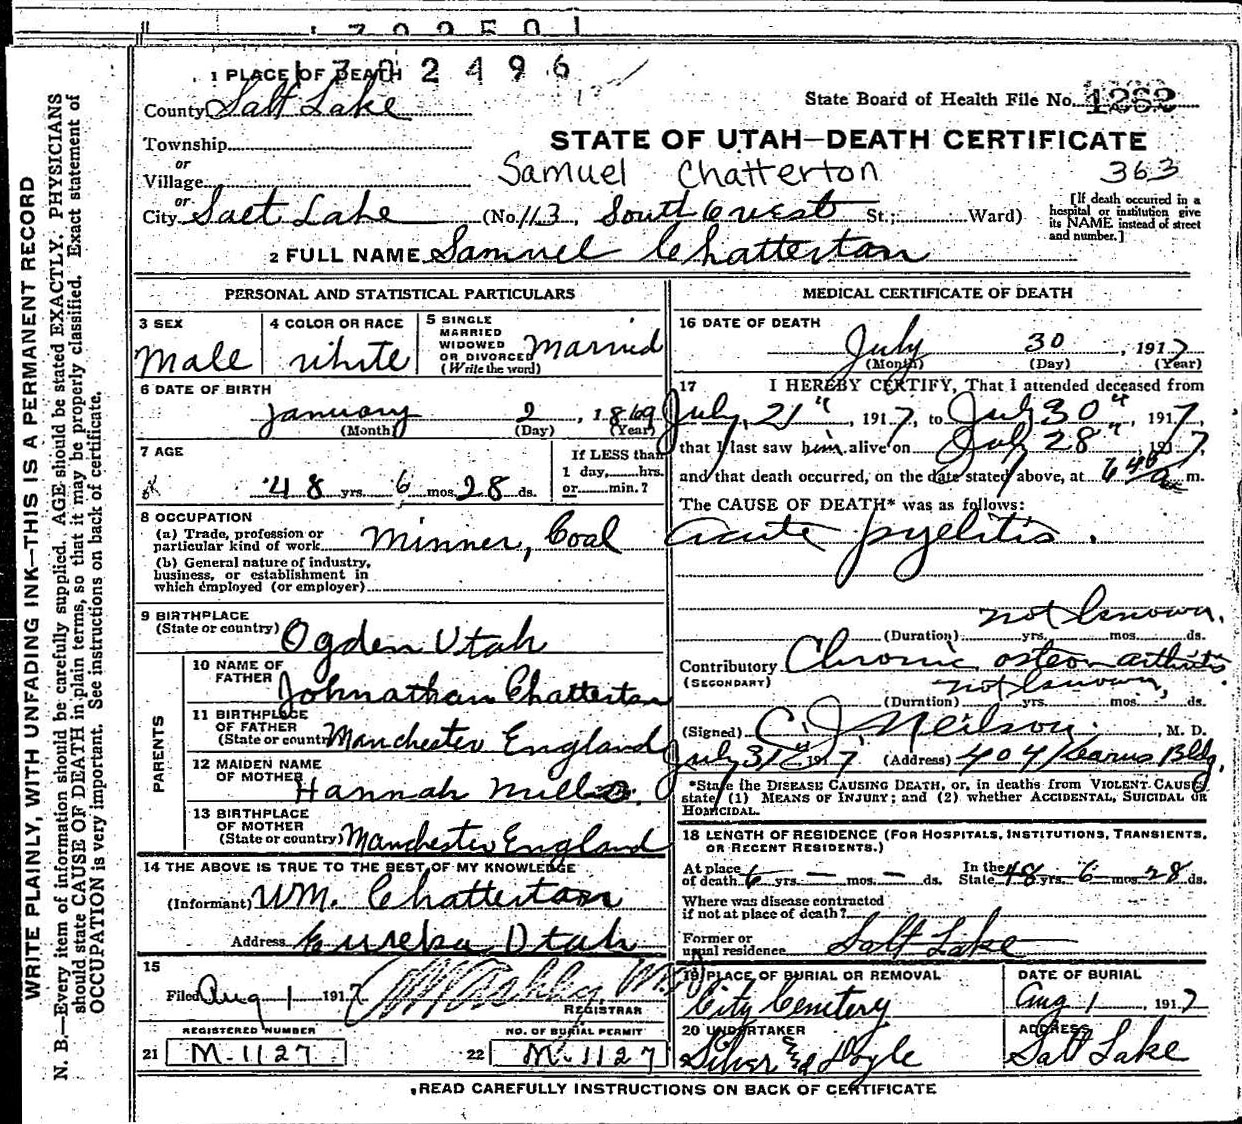 1702501
1 PLACE OF DEATH
1702496
County Salt Lake
State Board of Health File No. 1262
Township
STATE OF UTAH—DEATH CERTIFICATE
or
Village
Samuel Chatterton
363
or
City Salt Lake (No. 113, South 6 west St.; Ward)
[If death occurred in a hospital or institution give its NAME instead of street and number.]
2 FULL NAME Samuel Chatterton
PERSONAL AND STATISTICAL PARTICULARS
3 SEX
Male
4 COLOR OR RACE
white
5 SINGLE
MARRIED
WIDOWED
OR DIVORCED
(Write the word)
Married
6 DATE OF BIRTH
January 2, 1869
(Month) (Day) (Year)
7 AGE
48 yrs. 6 mos. 28 ds.
If LESS than
1 day, hrs.
or min.?
8 OCCUPATION
(a) Trade, profession or
particular kind of work Minner, Coal
(b) General nature of industry,
business, or establishment in
which employed (or employer)
9 BIRTHPLACE
(State or country) Ogden Utah
PARENTS
10 NAME OF
FATHER
Johnathan Chatterton
11 BIRTHPLACE
OF FATHER
(State or country) Manchester England
12 MAIDEN NAME
OF MOTHER
Hannah
13 BIRTHPLACE
OF MOTHER
(State or country) Manchester England
14 THE ABOVE IS TRUE TO THE BEST OF MY KNOWLEDGE
(Informant) WM. Chatterton
Address Eureka Utah
15
Filed Aug 1 1917
REGISTRAR
REGISTERED NUMBER
21 M-1127
NO. OF BURIAL PERMIT
22 M-1127
MEDICAL CERTIFICATE OF DEATH
16 DATE OF DEATH
July 30, 1917
(Month) (Day) (Year)
17 I HEREBY CERTIFY, That I attended deceased from
July, 21", 1917, to July 30", 1917,
that I last saw him alive on July 28" 1917,
and that death occurred, on the date stated above, at 6 40 a m.
The CAUSE OF DEATH* was as follows:
acute pyelitis.
not known.
(Duration) yrs. mos. ds.
Contributory Chronic osteon arthritis
(SECONDARY)
not known,
(Duration) yrs. mos. ds.
(Signed) C. J. Neilson, M. D.
July 31" 1917 (Address) 404 Kearns Bldg.
*State the DISEASE CAUSING DEATH, or, in deaths from VIOLENT CAUSES
state (1) MEANS OF INJURY; and (2) whether ACCIDENTAL, SUICIDAL OR
HOMICIDAL.
18 LENGTH OF RESIDENCE (FOR HOSPITALS, INSTITUTIONS, TRANSIENTS,
OR RECENT RESIDENTS.)
At place
of death 6 yrs. — mos. — ds.
In the
State 48 yrs. 6 mos. 28 ds.
Where was disease contracted
if not at place of death?
Former or
usual residence Salt Lake
19 PLACE OF BURIAL OR REMOVAL
City Cemetery
DATE OF BURIAL
Aug 1, 1917
20 UNDERTAKER
ADDRESS
Salt Lake
READ CAREFULLY INSTRUCTIONS ON BACK OF CERTIFICATE
WRITE PLAINLY, WITH UNFADING INK—THIS IS A PERMANENT RECORD
N. B.—Every item of information should be carefully supplied. AGE should be stated EXACTLY. PHYSICIANS
should state CAUSE OF DEATH in plain terms, so that it may be properly classified. Exact statement of
OCCUPATION is very important. See instructions on back of certificate.